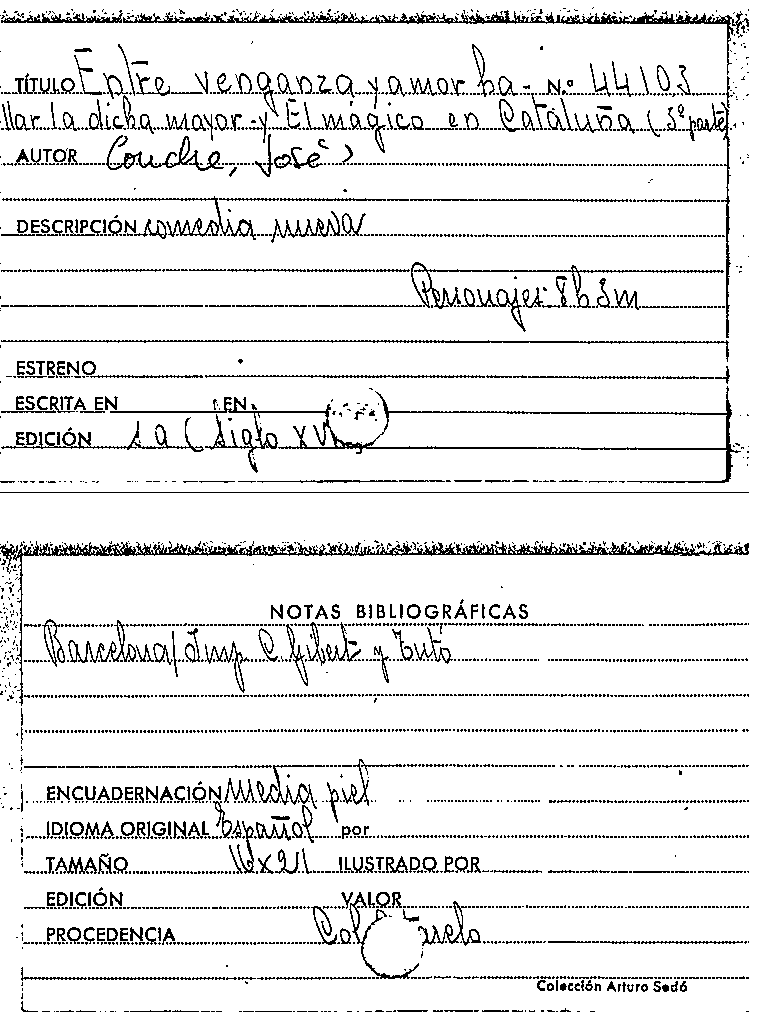 TÍTULO Entre venganza y amor ha- N.º 44103
llar la dicha mayor y El mágico en Cataluña (3ª parte)
AUTOR Conche, José
DESCRIPCIÓN comedia nueva
Personajes: 8 h 3 m
ESTRENO
ESCRITA EN EN
EDICIÓN s a (Siglo XV
NOTAS BIBLIOGRÁFICAS
Barcelona / Imp C. Gibert y Tutó
ENCUADERNACIÓN media piel
IDIOMA ORIGINAL Español por
TAMAÑO 16 x 21 ILUSTRADO POR
EDICIÓN VALOR
PROCEDENCIA Col
Colección Arturo Sedó